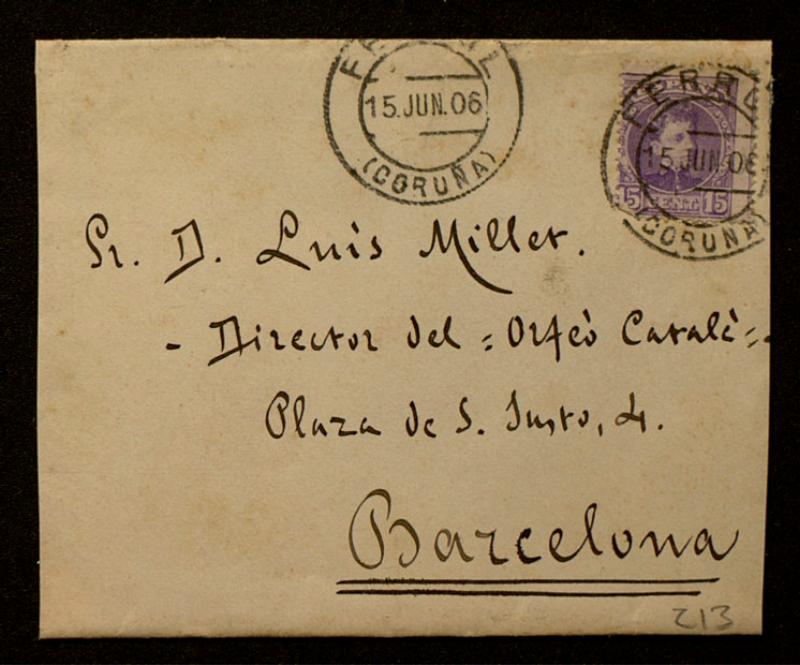 FERROL
15.JUN.06
(CORUÑA)
FERROL
15.JUN.06
(CORUÑA)
15 CENT. 15
Sr. D. Luis Millet.
- Director del "Orfeò Català".
Plaza de S. Justo, 4.
Barcelona
213